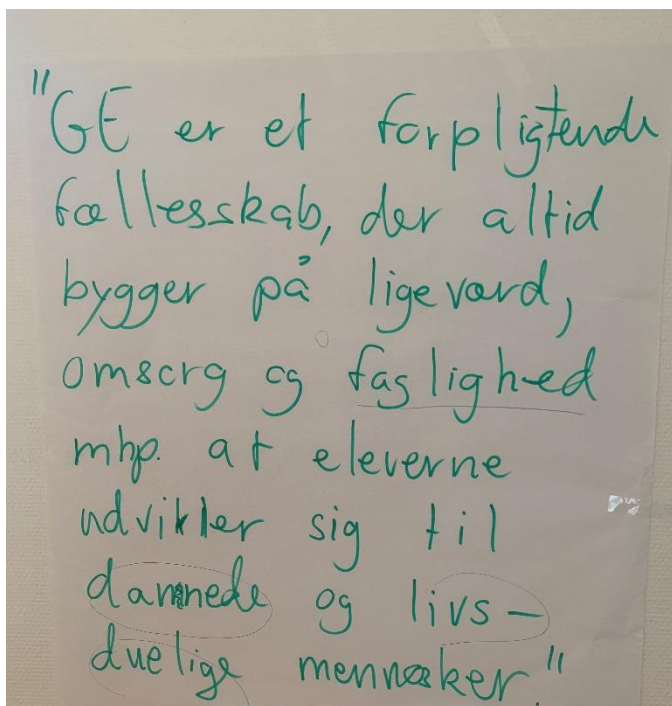 "GE er et forpligtende
fællesskab, der altid
bygger på ligeværd,
omsorg og faglighed
mhp. at eleverne
udvikler sig til
dannede og livs-
duelige mennesker."